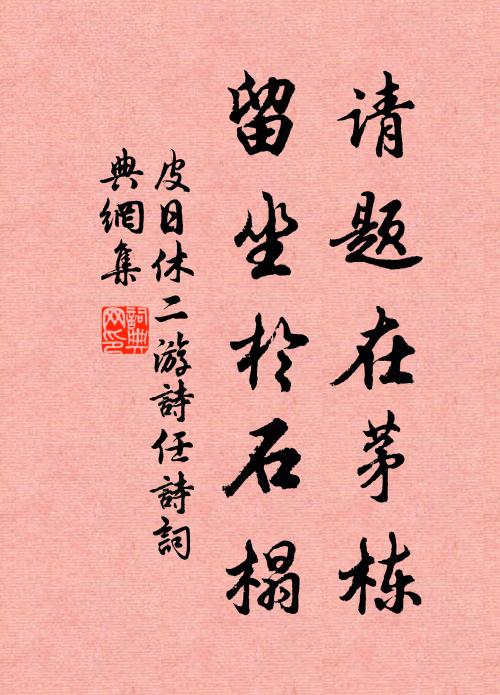 请题在茅栋
留坐於石榻
皮日休二游詩任詩詞
典網集
詞典网印